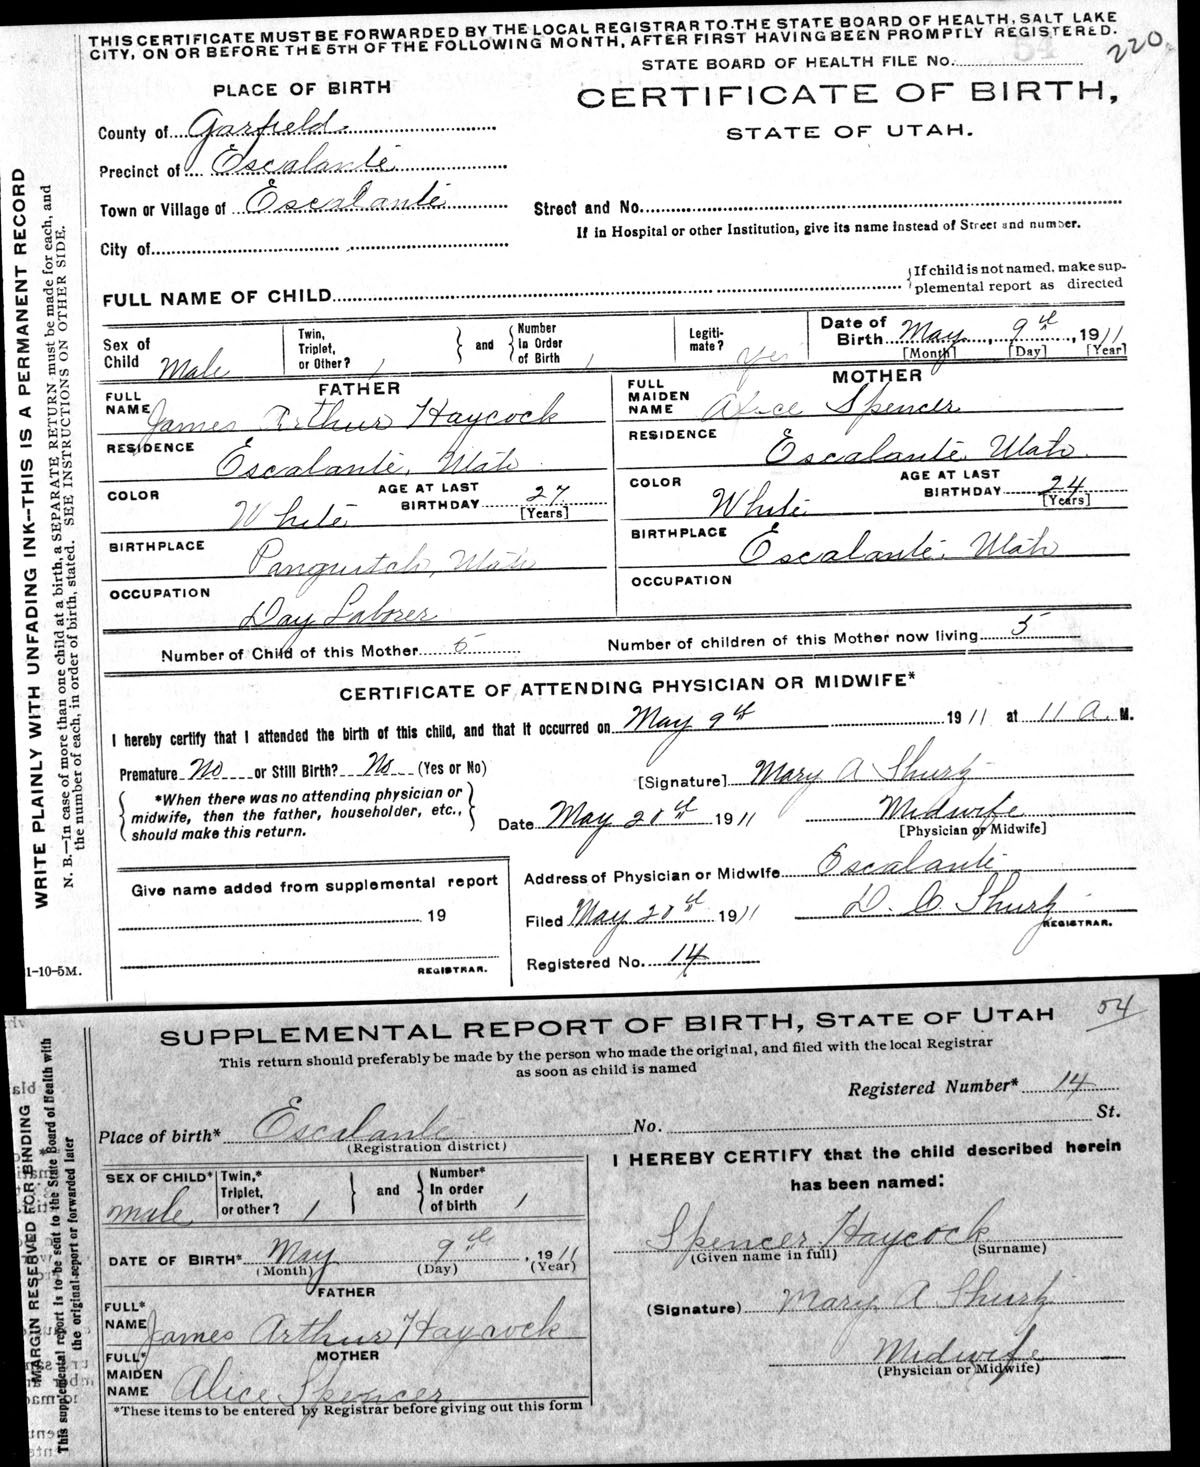 THIS CERTIFICATE MUST BE FORWARDED BY THE LOCAL REGISTRAR TO THE STATE BOARD OF HEALTH, SALT LAKE
CITY, ON OR BEFORE THE 5TH OF THE FOLLOWING MONTH, AFTER FIRST HAVING BEEN PROMPTLY REGISTERED.
STATE BOARD OF HEALTH FILE No. 54
220
PLACE OF BIRTH
CERTIFICATE OF BIRTH,
STATE OF UTAH.
County of Garfield
Precinct of Escalante
Town or Village of Escalante
Street and No.
City of
If in Hospital or other Institution, give its name instead of Street and number.
FULL NAME OF CHILD
{If child is not named, make sup-
plemental report as directed
Sex of Child Male
Twin, Triplet, or Other? 1
and
Number In Order of Birth 1
Legiti-mate? Yes
Date of Birth May 9th, 1911
[Month] [Day] [Year]
FATHER
FULL NAME James Arthur Haycock
RESIDENCE Escalante, Utah
COLOR White
AGE AT LAST BIRTHDAY 27 [Years]
BIRTHPLACE Panguitch, Utah
OCCUPATION Day Laborer
MOTHER
FULL MAIDEN NAME Alice Spencer
RESIDENCE Escalante, Utah
COLOR White
AGE AT LAST BIRTHDAY 24 [Years]
BIRTHPLACE Escalante, Utah
OCCUPATION
Number of Child of this Mother 5
Number of children of this Mother now living 5
CERTIFICATE OF ATTENDING PHYSICIAN OR MIDWIFE*
I hereby certify that I attended the birth of this child, and that it occurred on May 9th 1911 at 11 a. M.
Premature No or Still Birth? No (Yes or No)
*When there was no attending physician or
midwife, then the father, householder, etc.,
should make this return.
[Signature] Mary A Shurtz
Date May 20th 1911
Midwife
[Physician or Midwife]
Give name added from supplemental report
19
REGISTRAR.
Address of Physician or Midwife Escalante
Filed May 20th 1911
D. C. Shurtz
REGISTRAR.
Registered No. 14
WRITE PLAINLY WITH UNFADING INK--THIS IS A PERMANENT RECORD
N. B.—In case of more than one child at a birth, a SEPARATE RETURN must be made for each, and
the number of each, in order of birth, stated. SEE INSTRUCTIONS ON OTHER SIDE.
1-10-5M.
SUPPLEMENTAL REPORT OF BIRTH, STATE OF UTAH
54
This return should preferably be made by the person who made the original, and filed with the local Registrar
as soon as child is named
Registered Number* 14
Place of birth* Escalante No. St.
(Registration district)
SEX OF CHILD* male
Twin,* Triplet, or other? 1
and
Number* In order of birth 1
DATE OF BIRTH* May 9th, 1911
(Month) (Day) (Year)
FATHER
FULL* NAME James Arthur Haycock
MOTHER
FULL* MAIDEN NAME Alice Spencer
*These items to be entered by Registrar before giving out this form
I HEREBY CERTIFY that the child described herein
has been named:
Spencer Haycock
(Given name in full) (Surname)
(Signature) Mary A Shurtz
Midwife
(Physician or Midwife)
MARGIN RESERVED FOR BINDING
This supplemental report is to be sent to the State Board of Health with
the original report or forwarded later